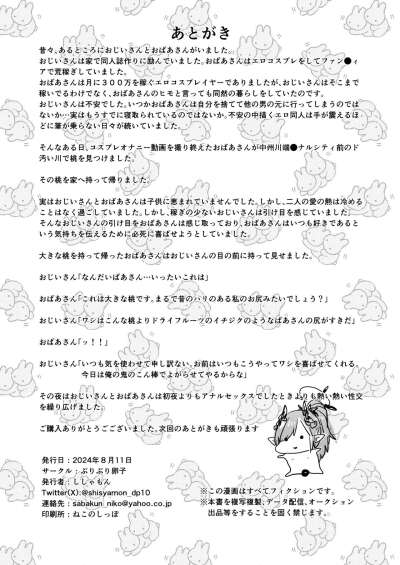 あとがき
昔々、あるところにおじいさんとおばあさんがいました。
おじいさんは家で同人誌作りに励んでいました。おばあさんはエロコスプレをしてファン●ィ
アで荒稼ぎしていました。
おばあさんは月に３００万を稼ぐエロコスプレイヤーでありましたが、おじいさんはそこまで
稼いでるわけでなく、おばあさんのヒモと言っても同然の暮らしをしていたのです。
おじいさんは不安でした。いつかおばあさんは自分を捨てて他の男の元に行ってしまうのでは
ないか…実はもうすでに寝取られているのではないか。不安の中描くエロ同人は手が震えるほ
どに筆が乗らない日々が続いていました。
そんなある日、コスプレオナニー動画を撮り終えたおばあさんが中州川端●ナルシティ前のド
汚い川で桃を見つけました。
その桃を家へ持って帰りました。
実はおじいさんとおばあさんは子供に恵まれていませんでした。しかし、二人の愛の熱は冷める
ことはなく過ごしていました。しかし、稼ぎの少ないおじいさんは引け目を感じていました。
そんなおじいさんの引け目をおばあさんは感じ取っており、おばあさんはいつも好きであると
いう気持ちを伝えるために必死に喜ばせようとしていました。
大きな桃を持って帰ったおばあさんはおじいさんの目の前に持って見せました。
おじいさん「なんだいばあさん…いったいこれは」
おばあさん「これは大きな桃です。まるで昔のハリのある私のお尻みたいでしょう？」
おじいさん「ワシはこんな桃よりドライフルーツのイチジクのようなばあさんの尻がすきだ」
おばあさん「ッ！！」
おじいさん「いつも気を使わせて申し訳ない。お前はいつもこうやってワシを喜ばせてくれる。
今日は俺の鬼のこん棒でよがらせてやるからな」
その夜はおじいさんとおばあさんは初夜よりもアナルセックスでしたときよりも熱い熱い性交
を繰り広げました。
ご購入ありがとうございました。次回のあとがきも頑張ります
発行日：2024年８月11日
サークル：ぷりぷり卵子
発行者：ししゃもん
Twitter(X):@shisyamon_dp10
連絡先：sabakun_niko@yahoo.co.jp
印刷所：ねこのしっぽ
※この漫画はすべてフィクションです。
※本書を複写複製、データ配信、オークション
出品等をすることを固く禁じます。